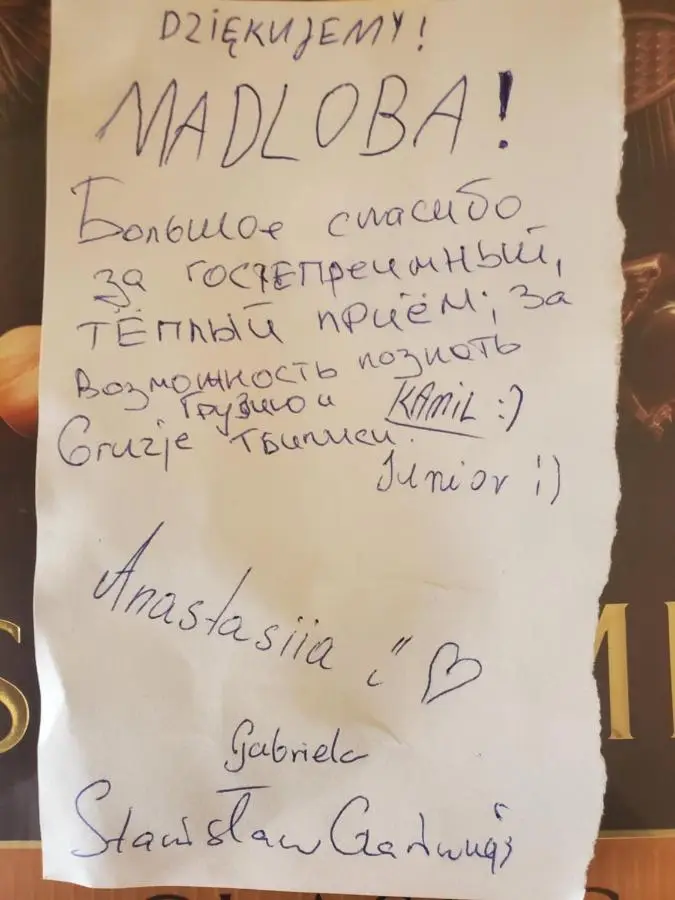 DZIĘKUJEMY!
MADLOBA!
Большое спасибо
за гостепреимный,
тёплый приём; за
возможность познать
Грузию и KAMIL :)
Gruzje Тбилиси.
Junior ;)
Anastasiia :" ♡
Gabriela
Stanisław